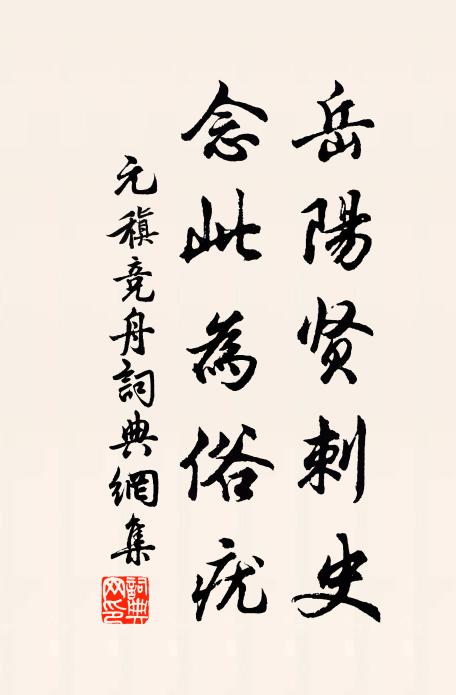 岳陽贤刺史
念此為俗疣
元稹竞舟詞典網集
詞典網印